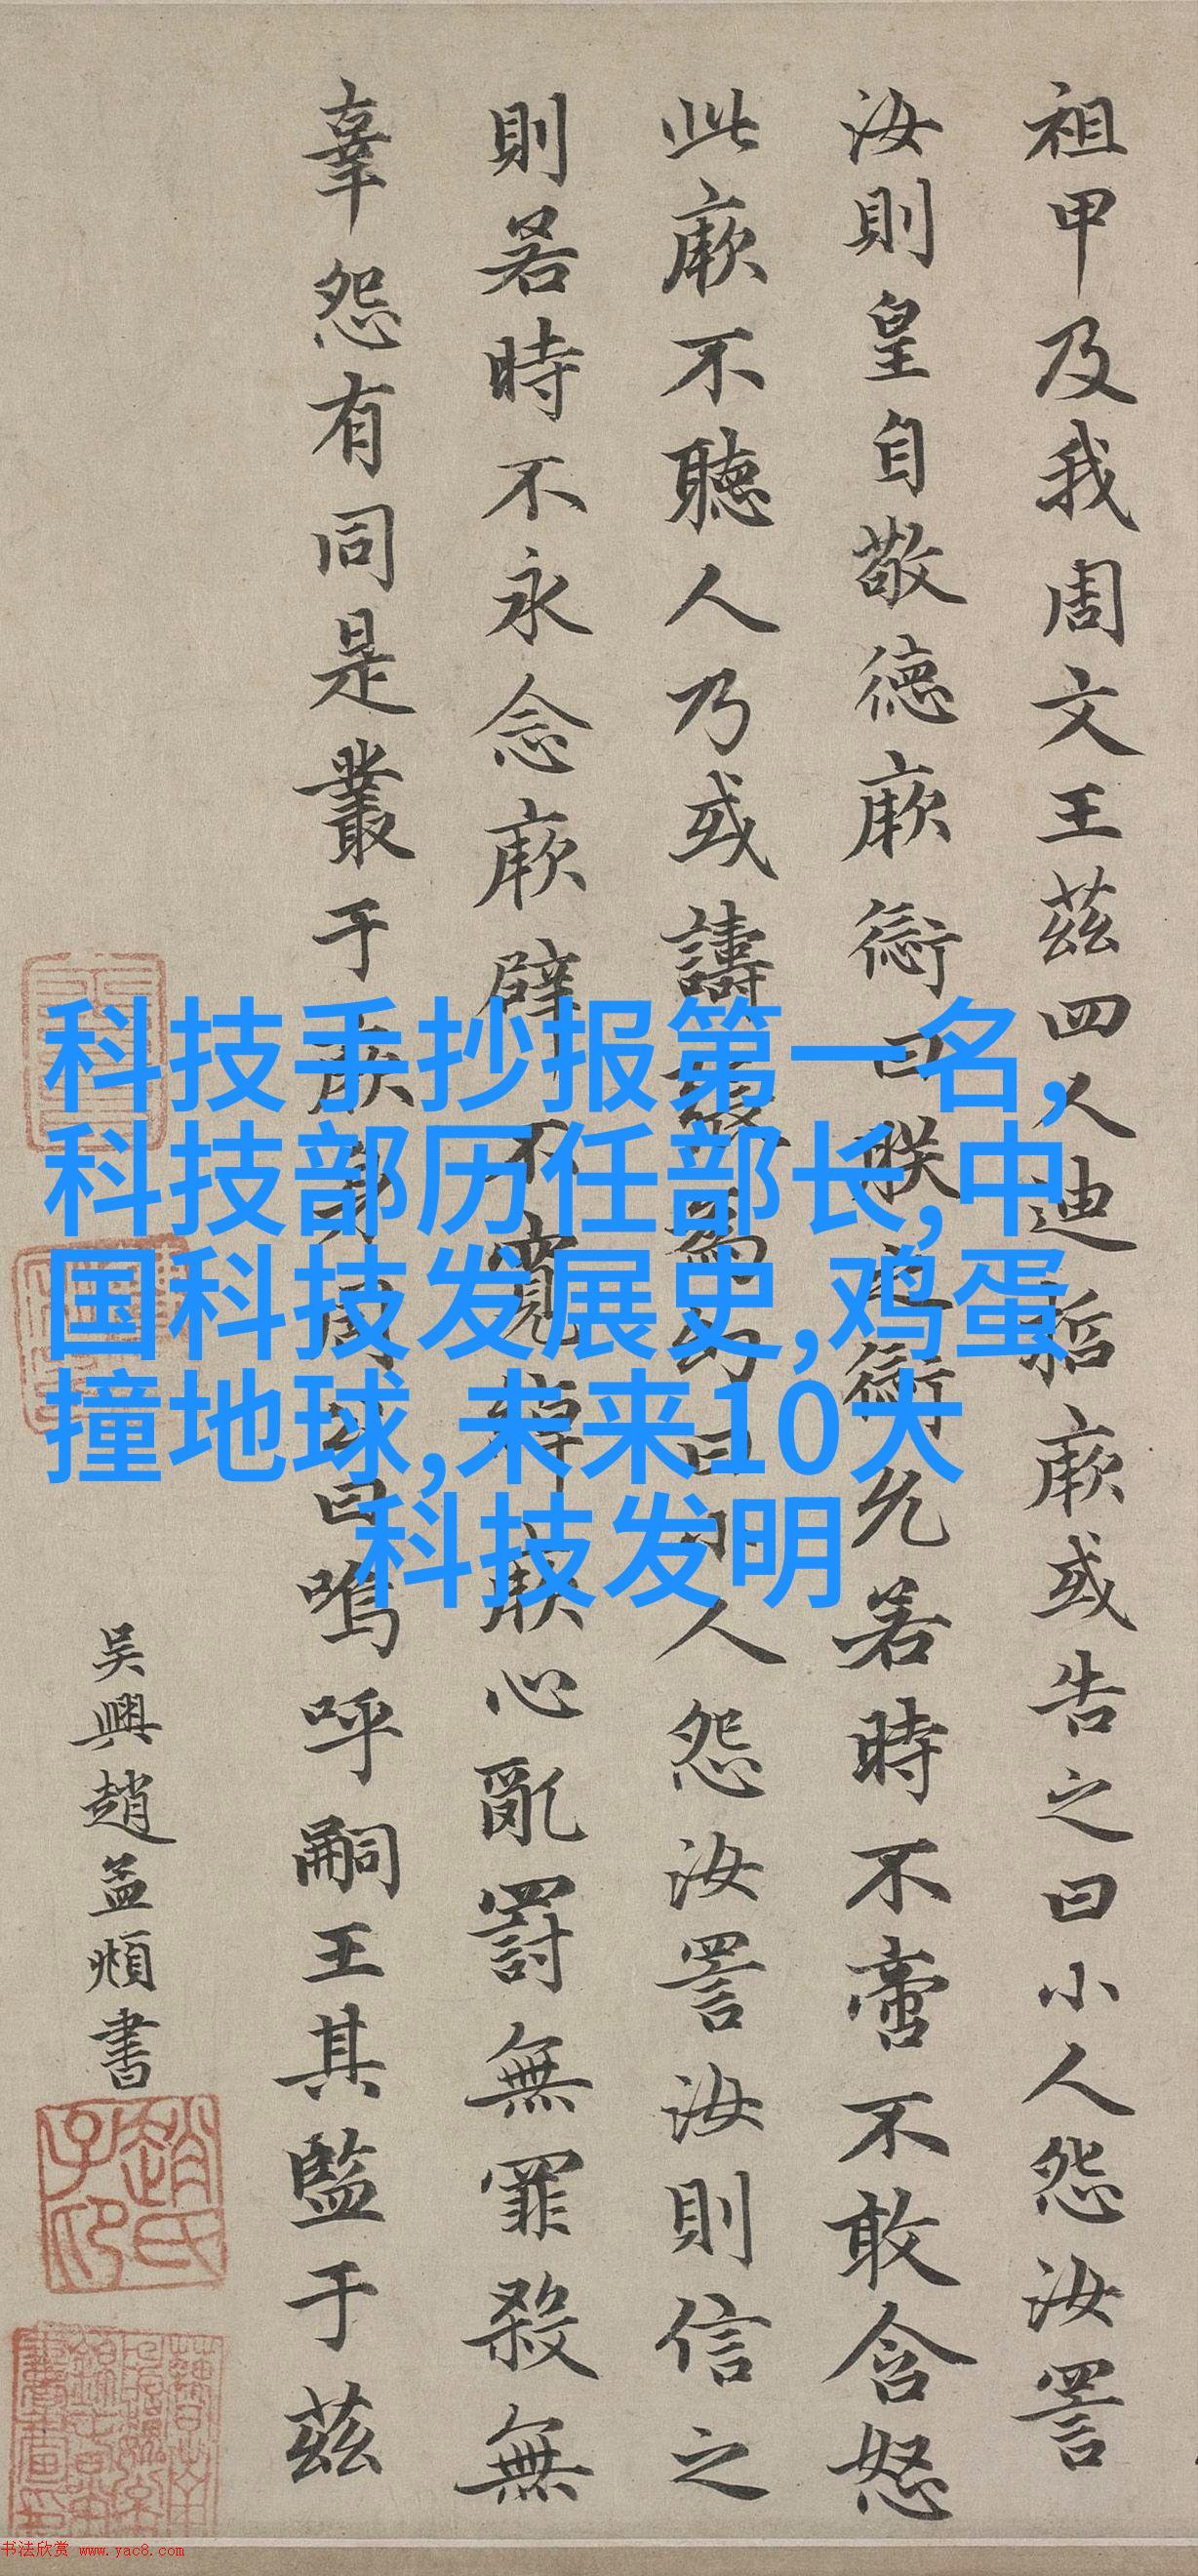 祖甲及我周文王茲四人迪哲厥或告之曰小人怨汝詈
汝則皇自敬德厥愆曰朕之愆允若時不啻不敢含怒
此厥不聽人乃或譸張為幻曰小人怨汝詈汝則信之
則若時不永念厥辟不寬綽厥心亂罰無罪殺無
辜怨有同是叢于厥身周公曰嗚呼嗣王其監于茲
吴興趙孟頫書
趙氏子印
科技手抄报第一名,
科技部历任部长,中
国科技发展史,鸡蛋
撞地球,未来10大
科技发明
书法欣赏 www.yac8.com